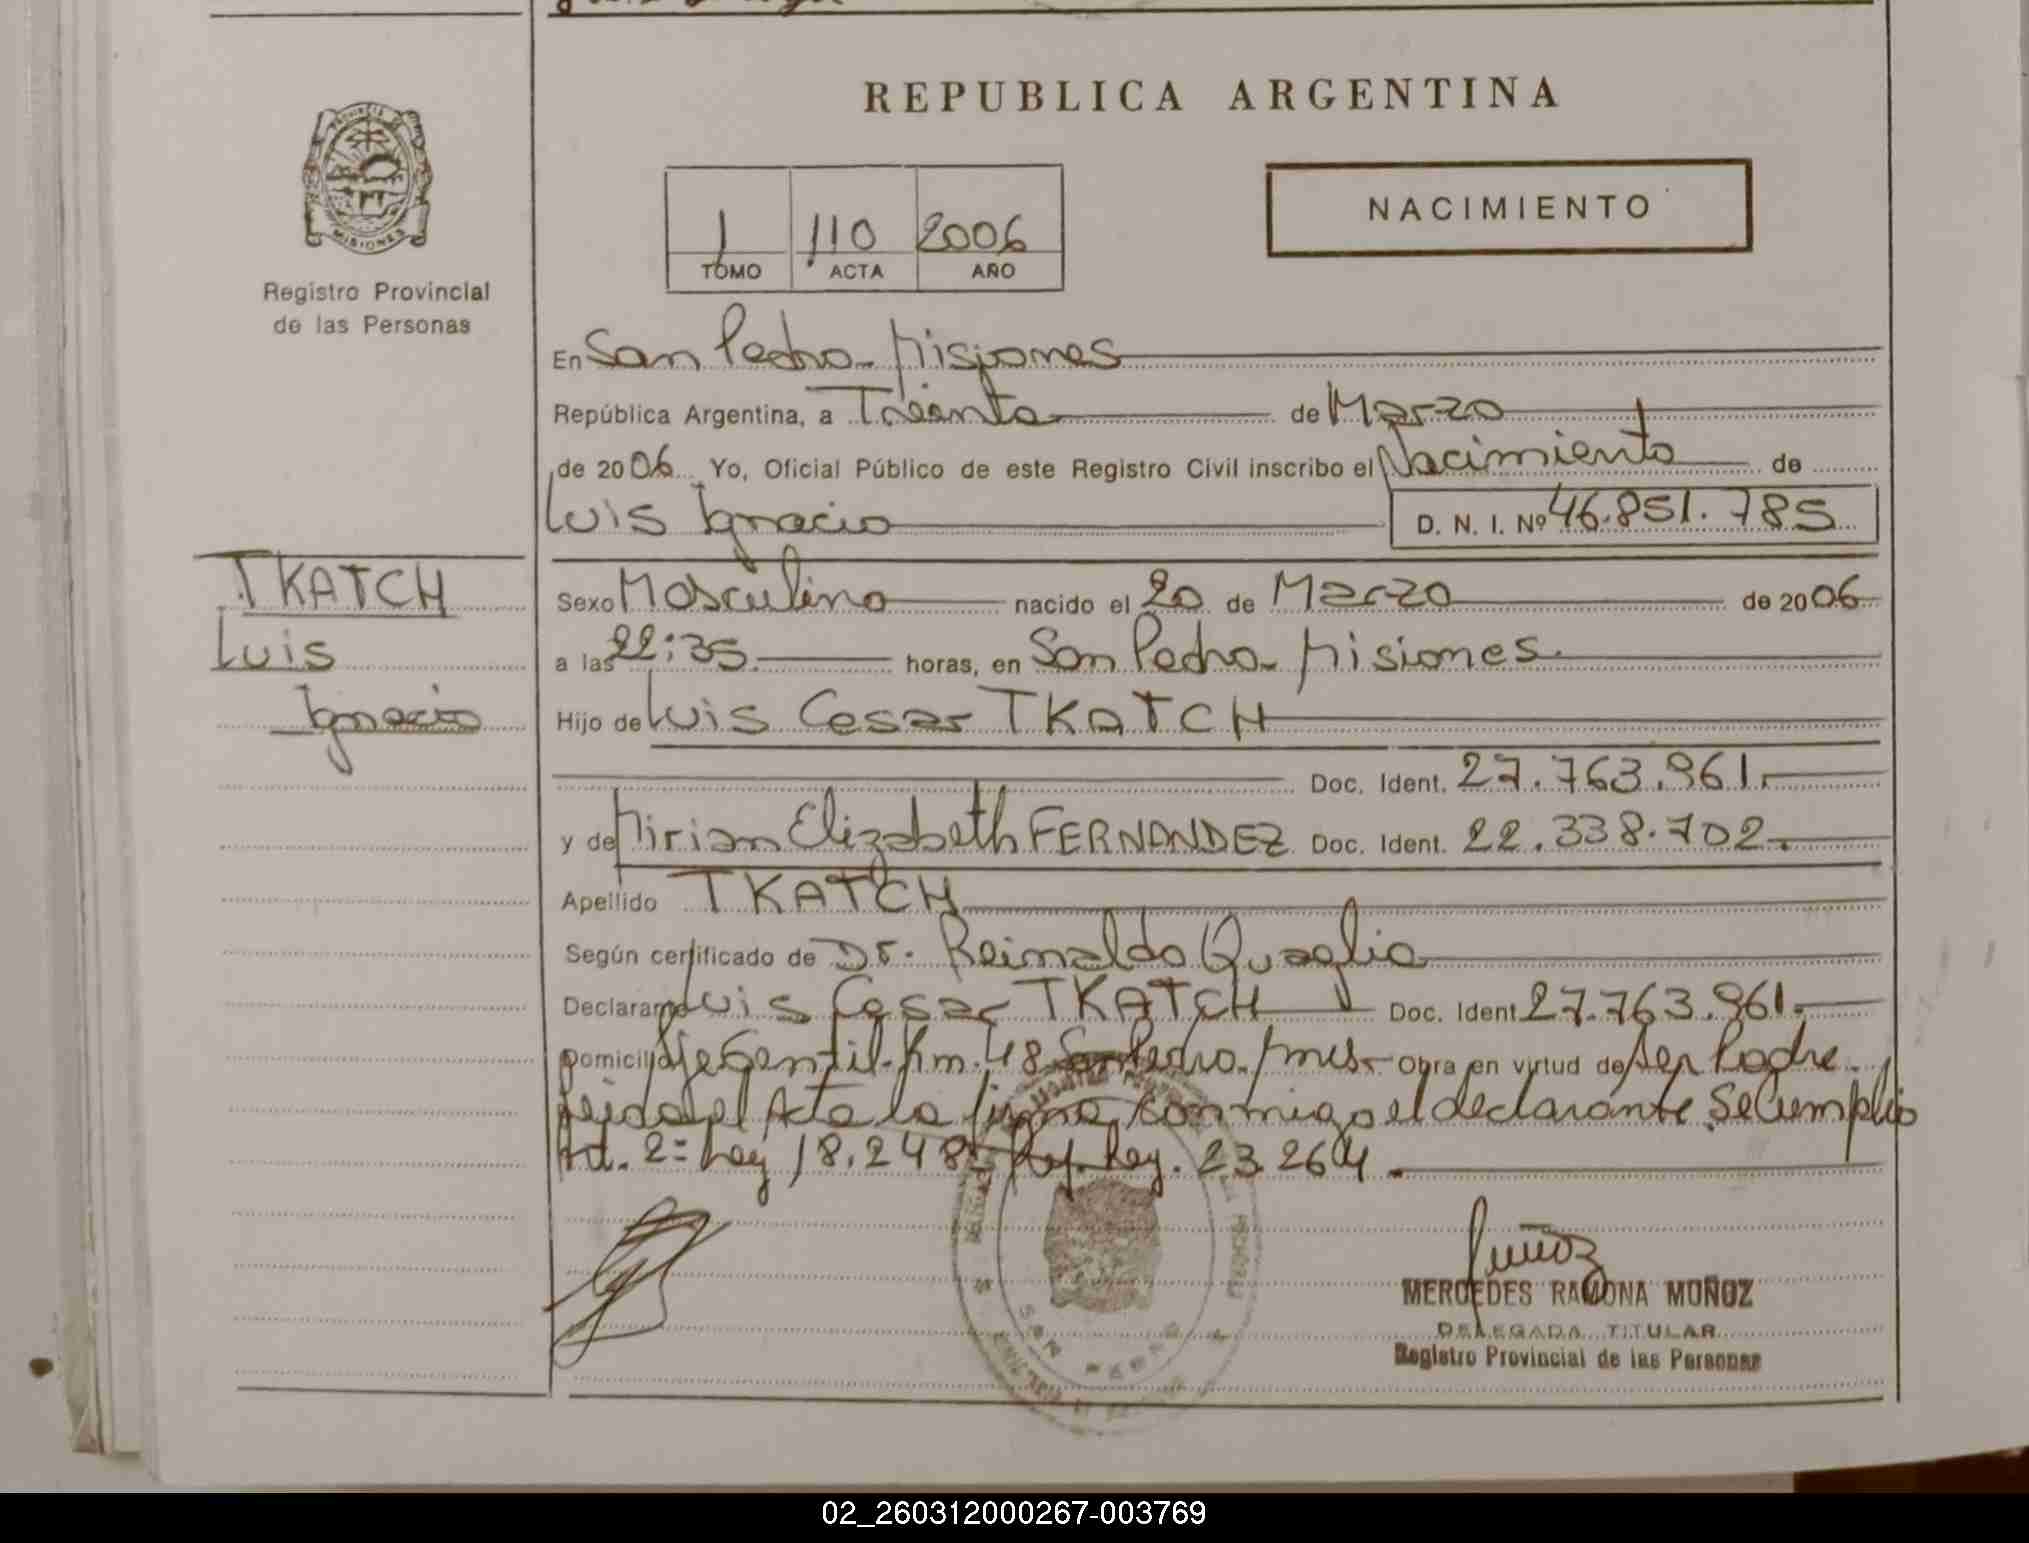 REPUBLICA ARGENTINA
PROVINCIA DE
MISIONES
Registro Provincial
de las Personas
1 110 2006
TOMO ACTA AÑO
NACIMIENTO
En San Pedro - Misiones
República Argentina, a Treinta de Marzo
de 2006 Yo, Oficial Público de este Registro Civil inscribo el Nacimiento de
Luis Ignacio D. N. I. Nº 46.851.785
TKATCH
Luis
Ignacio
Sexo Masculino nacido el 20 de Marzo de 2006
a las 22:35 horas, en San Pedro - Misiones.
Hijo de Luis Cesar TKATCH
Doc. Ident. 27.763.961.
y de Miriam Elizabeth FERNANDEZ Doc. Ident. 22.338.702.
Apellido TKATCH
Según certificado de Dr. Reinaldo Quaglia
Declarante Luis Cesar TKATCH Doc. Ident 27.763.961.
Domicilio Gentil - Km. 48 San Pedro - Mnes - Obra en virtud de ser Padre.
leida el Acta la firma conmigo el declarante. Se Cumplio
Art. 2= Ley 18.248 Ref. Ley. 23.264.
SAN PEDRO
Muñoz
MERCEDES RAMONA MUÑOZ
DELEGADA TITULAR
Registro Provincial de las Personas
02_260312000267-003769